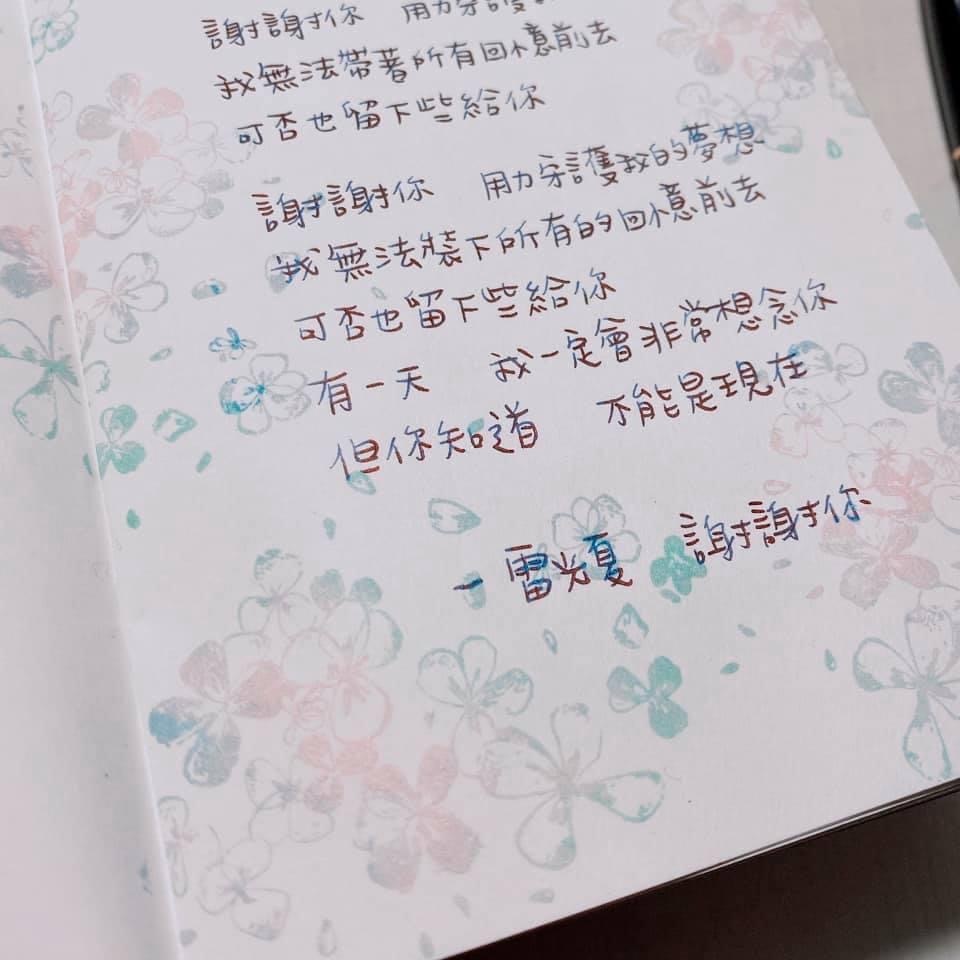 謝謝你 用力守護
我無法帶著所有回憶前去
可否也留下些給你
謝謝你 用力守護我的夢想
我無法裝下所有的回憶前去
可否也留下些給你
有一天 我一定會非常想念你
但你知道 不能是現在
- 雷光夏 謝謝你